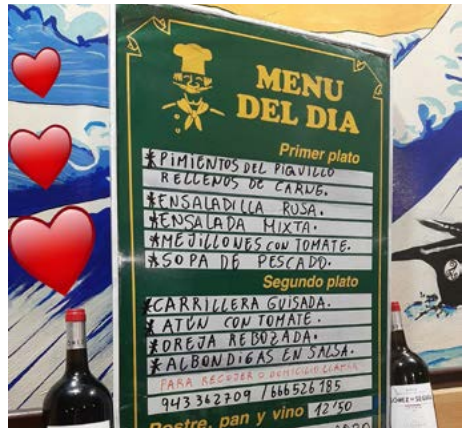 MENU
DEL DIA
Primer plato
*PIMIENTOS DEL PIQUILLO
RELLENOS DE CARNE.
*ENSALADILLA RUSA.
*ENSALADA MIXTA.
*MEJILLONES CON TOMATE.
*SOPA DE PESCADO.
Segundo plato
*CARRILLERA GUISADA.
*ATÚN CON TOMATE.
*OREJA REBOZADA.
*ALBONDIGAS EN SALSA.
PARA RECOJER O DOMICILIO LLAMAR
943 362709 / 666526185
Postre, pan y vino 12'50